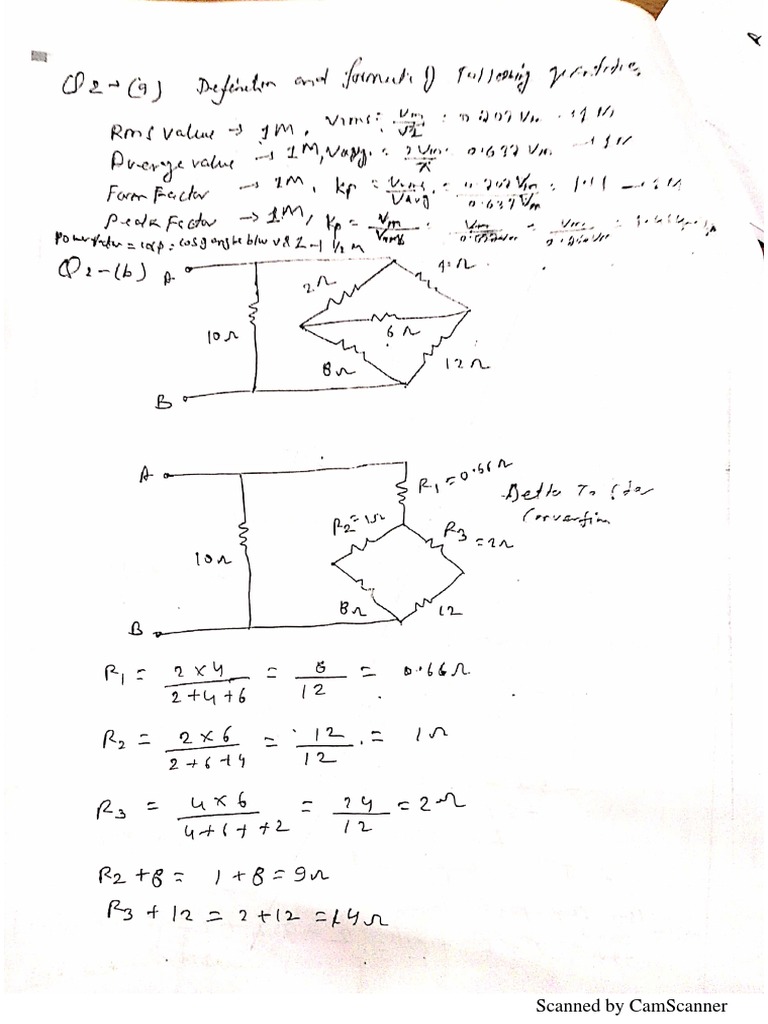 Q2→(a) Definition and formula of following quantities
Rms value → 1M, Vrms = Vm/√2 = 0.707 Vm
Average value → 1M, Vavg. = 2Vm/π = 0.637 Vm
Form Factor → 1M, Kp = Vrms/Vavg = 0.707Vm/0.637Vm = 1.11
Peak Factor → 1M, Kp = Vm/Vrms
Power factor = cosφ = cos of angle b/w V & I → 1/2 M
Q2-(b)
A
2Ω
4Ω
10Ω
6Ω
8Ω
12Ω
B
A
R1 = 0.66Ω
Delta To Star
R2 = 1Ω
R3 = 2Ω
Convertion
10Ω
8Ω
12
B
R1 = 2×4/2+4+6 = 8/12 = 0.66Ω
R2 = 2×6/2+6+4 = 12/12 = 1Ω
R3 = 4×6/4+6++2 = 24/12 = 2Ω
R2 + 8 = 1 + 8 = 9Ω
R3 + 12 = 2 + 12 = 14Ω
Scanned by CamScanner